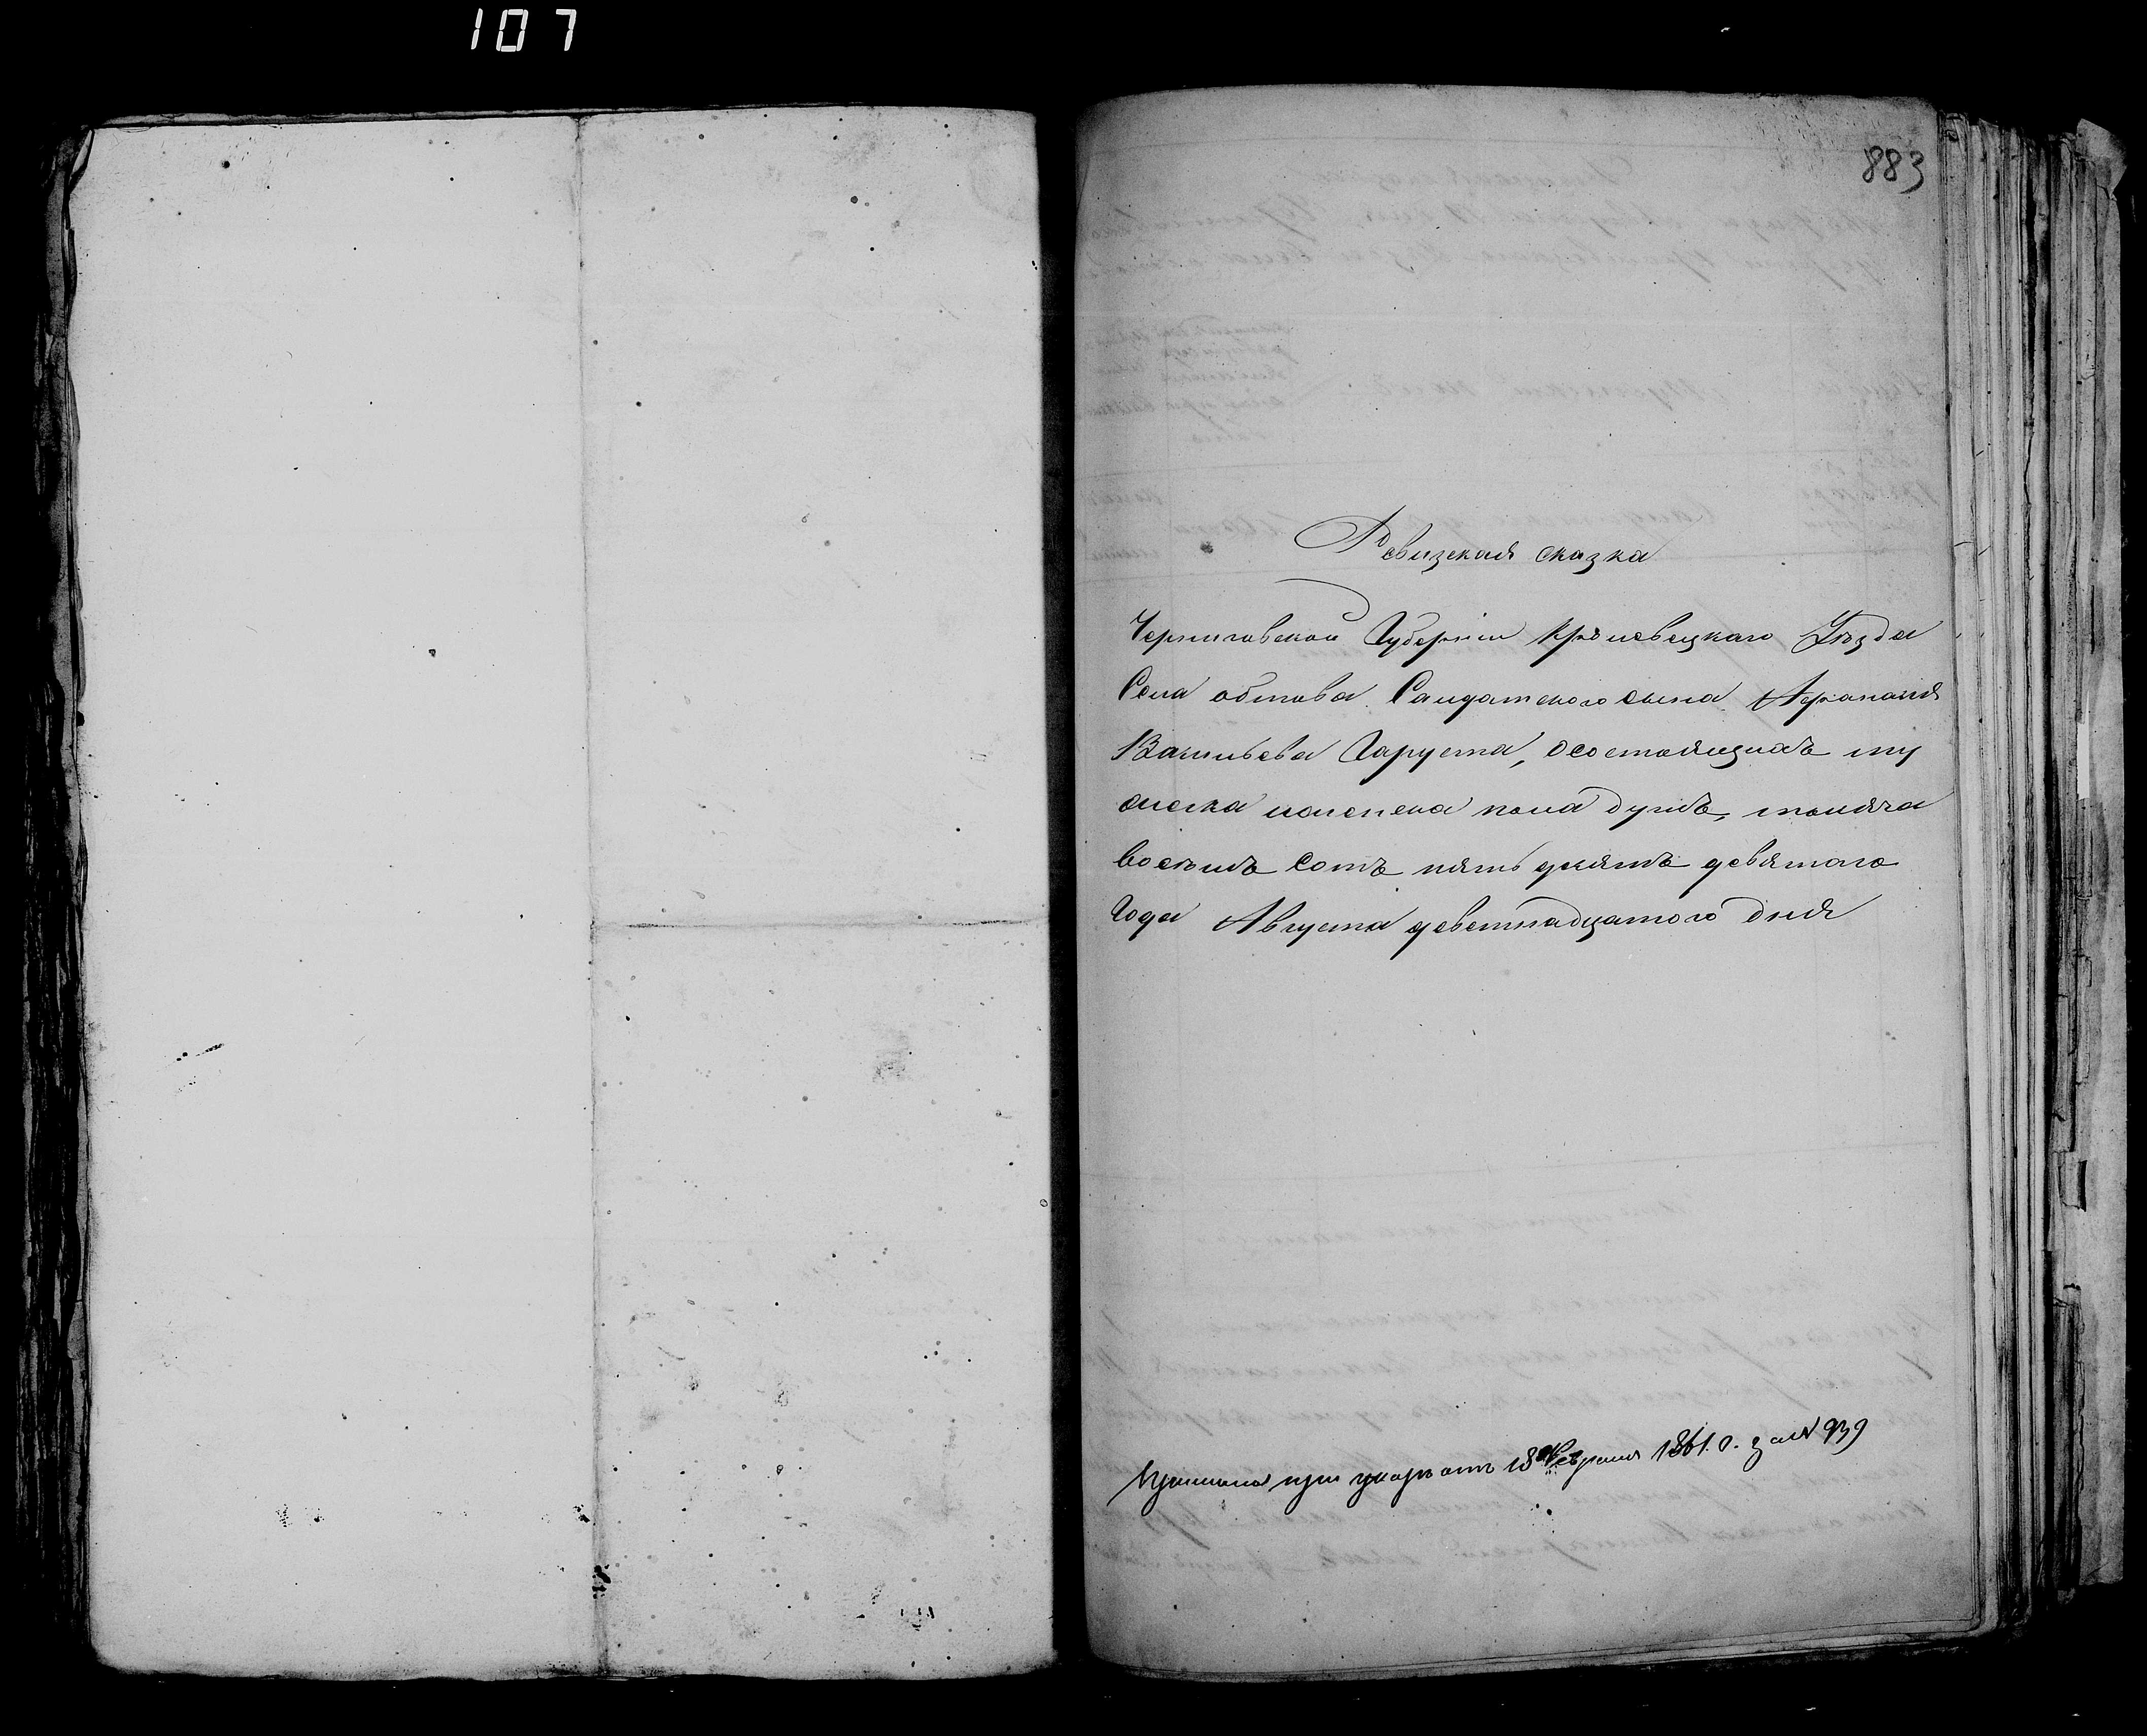 107
883
Ревизская сказка
Черниговской Губернии Кролевецкаго Уезда
Села обтова Салдатского сына Афанасия
Васильева Гаруста, осостоящихъ му
жеска иженска пола душъ, тысяча
восемъ сотъ пять десятъ девятого
Года Августа деветнадцатого дня
при указе отъ 18 Февраля 1861. г. за № 939